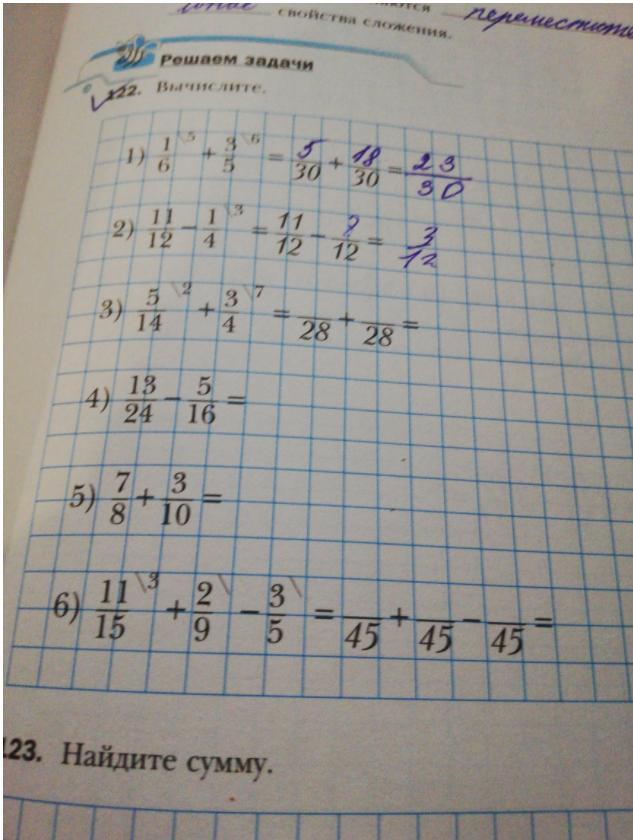 свойства сложения. переместите
Решаем задачи
122. Вычислите.
1) 1/6 \5 + 3/5 \6 = 5/30 + 18/30 = 23/30
2) 11/12 − 1/4 \3 = 11/12 − /12 = 3/12
3) 5/14 \2 + 3/4 \7 = /28 + /28 =
4) 13/24 − 5/16 =
5) 7/8 + 3/10 =
6) 11/15 \3 + 2/9 \ − 3/5 \ = /45 + /45 − /45 =
123. Найдите сумму.